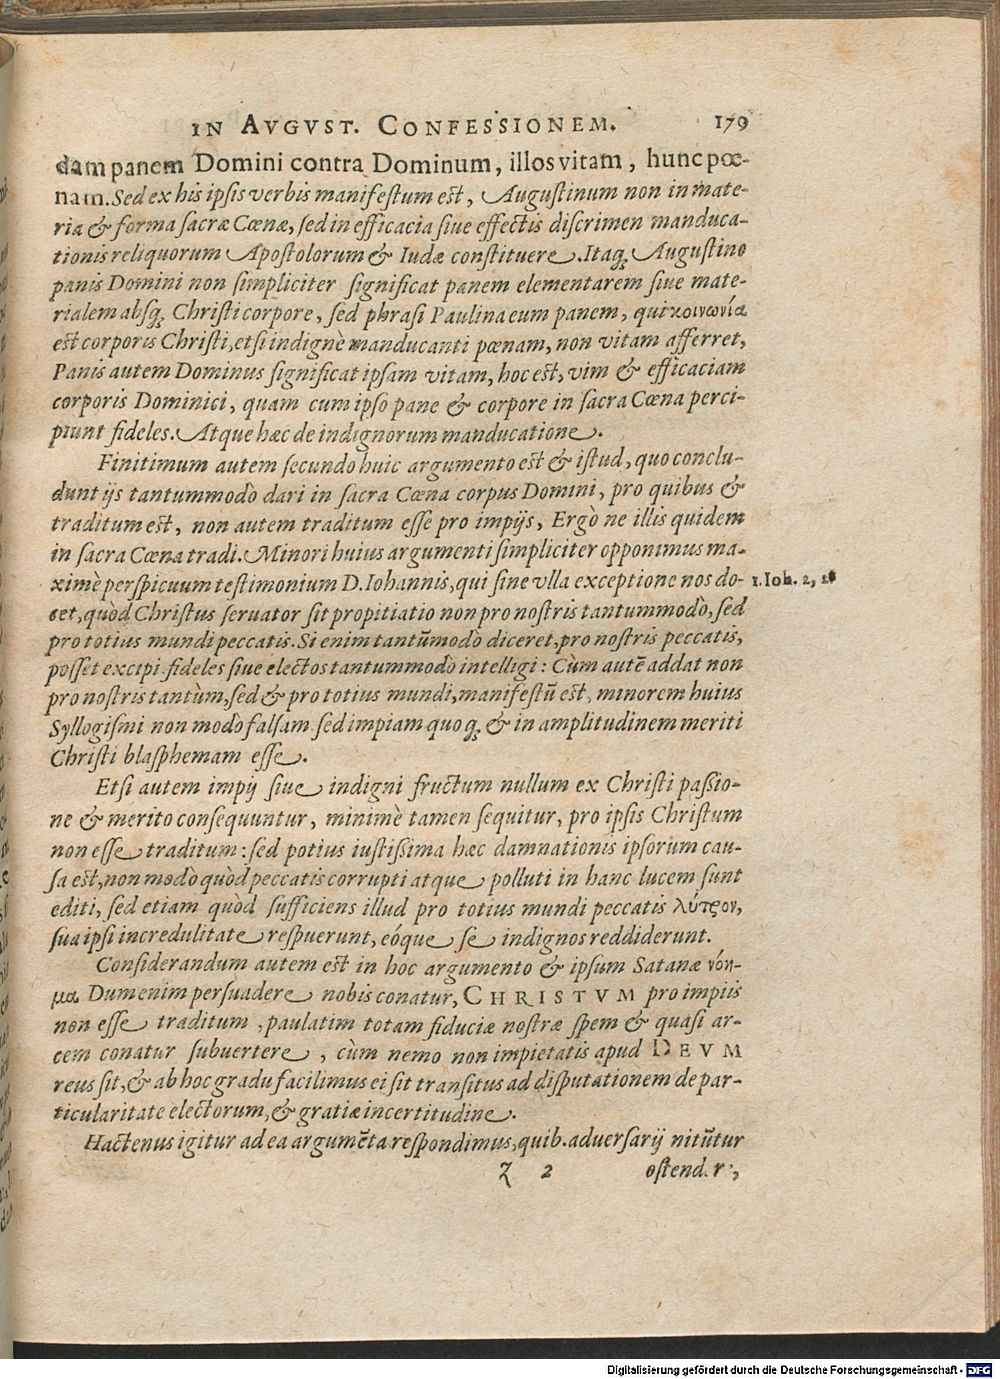 IN AVGVST. CONFESSIONEM. 179
dam panem Domini contra Dominum, illos vitam, hunc pœ-
nam. Sed ex his ipsis verbis manifestum est, Augustinum non in mate-
ria & forma sacræ Cœnæ, sed in efficacia siue effectis discrimen manduca-
tionis reliquorum Apostolorum & Iudæ constituere. Itaq; Augustino
panis Domini non simpliciter significat panem elementarem siue mate-
rialem absq; Christi corpore, sed phrasi Paulina eum panem, qui κοινωνία
est corporis Christi, etsi indignè manducanti pœnam, non vitam afferret,
Panis autem Dominus significat ipsam vitam, hoc est, vim & efficaciam
corporis Dominici, quam cum ipso pane & corpore in sacra Cœna perci-
piunt fideles. Atque hæc de indignorum manducatione.
Finitimum autem secundo huic argumento est & istud, quo conclu-
dunt ijs tantummodò dari in sacra Cœna corpus Domini, pro quibus &
traditum est, non autem traditum esse pro impijs, Ergò ne illis quidem
in sacra Cœna tradi. Minori huius argumenti simpliciter opponimus ma-
ximè perspicuum testimonium D. Iohannis, qui sine vlla exceptione nos do- 1. Ioh. 2, 2
cet, quòd Christus seruator sit propitiatio non pro nostris tantummodò, sed
pro totius mundi peccatis. Si enim tantūmodò diceret, pro nostris peccatis,
posset excipi fideles siue electos tantummodò intelligi: Cùm autē addat non
pro nostris tantùm, sed & pro totius mundi, manifestū est, minorem huius
Syllogismi non modo falsam sed impiam quoq; & in amplitudinem meriti
Christi blasphemam esse.
Etsi autem impij siue indigni fructum nullum ex Christi passio-
ne & merito consequuntur, minimè tamen sequitur, pro ipsis Christum
non esse traditum: sed potius iustissima hæc damnationis ipsorum cau-
sa est, non modò quòd peccatis corrupti atque polluti in hanc lucem sunt
editi, sed etiam quod sufficiens illud pro totius mundi peccatis λύτρον,
sua ipsi incredulitate respuerunt, eóque se indignos reddiderunt.
Considerandum autem est in hoc argumento & ipsum Satanæ νόη-
μα. Dum enim persuadere nobis conatur, CHRISTVM pro impiis
non esse traditum, paulatim totam fiduciæ nostræ spem & quasi ar-
cem conatur subuertere, cùm nemo non impietatis apud DEVM
reus sit, & ab hoc gradu facilimus ei sit transitus ad disputationem de par-
ticularitate electorum, & gratiæ incertitudine.
Hactenus igitur ad ea argumēta respondimus, quib. aduersarij nitūtur
Z 2 ostendere,
Digitalisierung gefördert durch die Deutsche Forschungsgemeinschaft - DFG